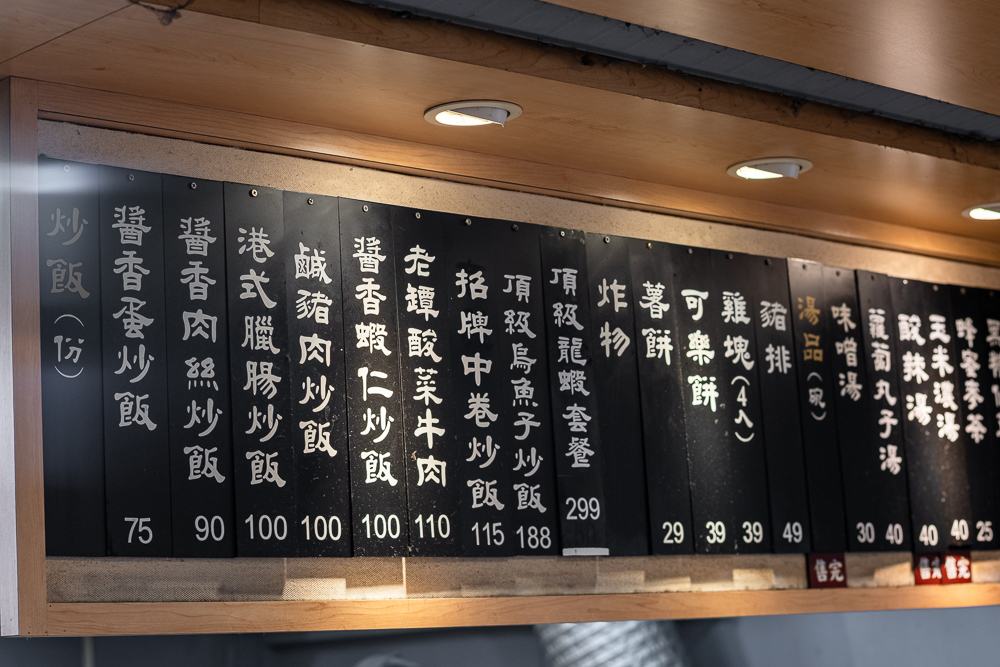 炒飯(份)
醬香蛋炒飯 75
醬香肉絲炒飯 90
港式臘腸炒飯 100
鹹豬肉炒飯 100
醬香蝦仁炒飯 100
老罈酸菜牛肉 110
招牌中卷炒飯 115
頂級烏魚子炒飯 188
頂級龍蝦套餐 299
炸物
薯餅 29
可樂餅 39
雞塊(4入) 39
豬排 49
湯品(碗)
味噌湯 30
蘿蔔丸子湯 40
酸辣湯 40
玉米濃湯 40
蜂蜜麥茶 25
售完
售完
售完